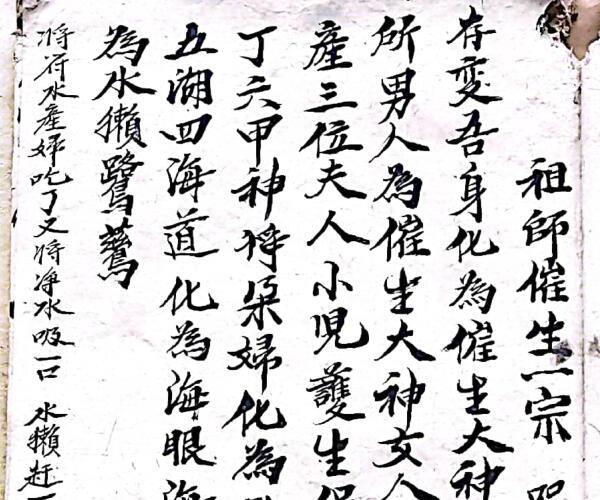 祖師催生一宗
存變吾身化為催生大神
所男人為催生大神女人
產三位夫人小児護生
丁六甲神将朶婦化為
五湖四海道化為海眼
為水獺鷺鶿
将符水產婦吃了又将净水吸一口 水獺赶